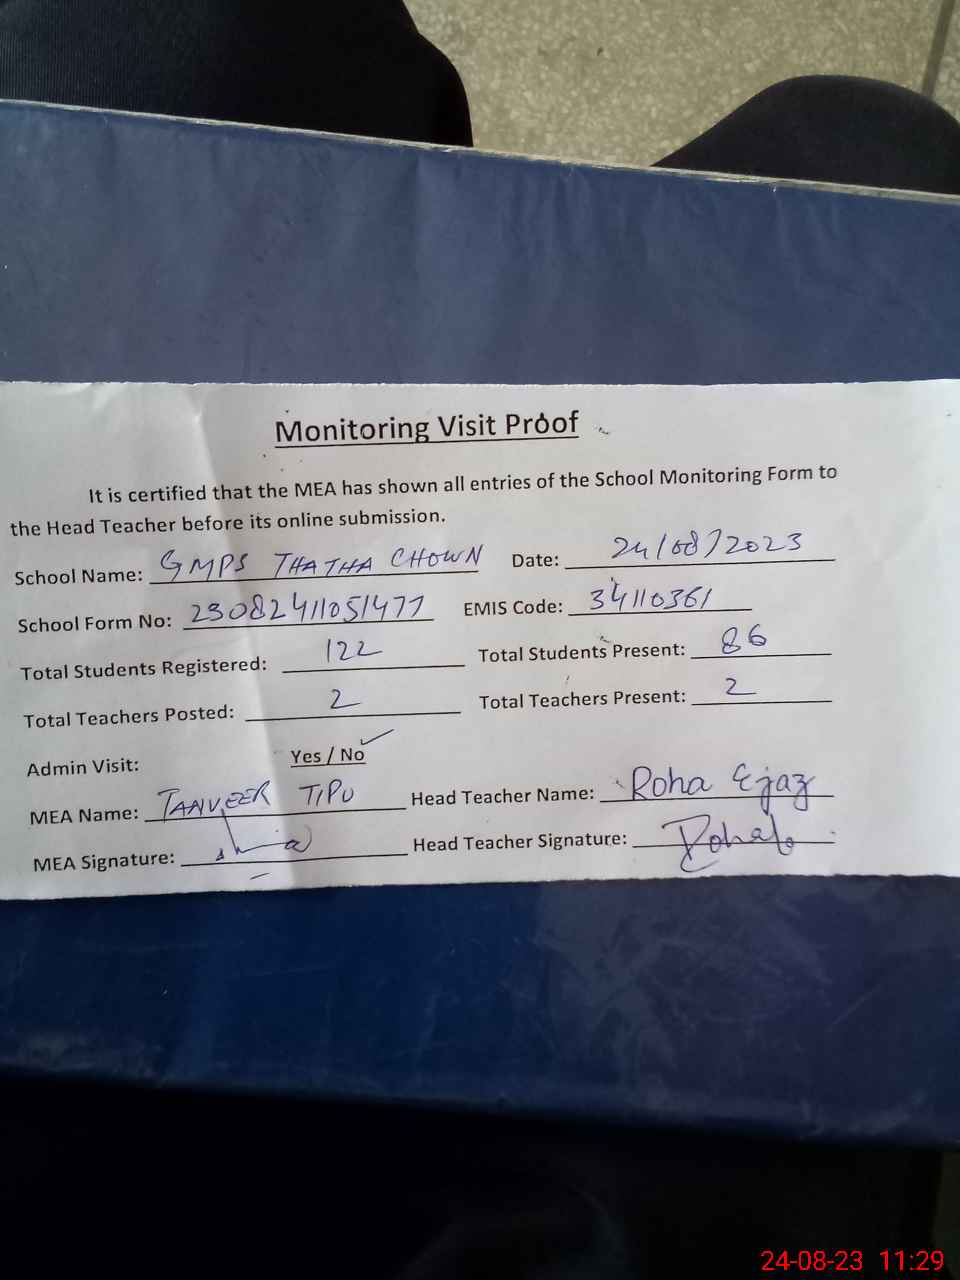 Monitoring Visit Proof
It is certified that the MEA has shown all entries of the School Monitoring Form to
the Head Teacher before its online submission.
School Name: GMPS THATHA CHOWN Date: 24/08/2023
School Form No: 23082411051477 EMIS Code: 34110361
Total Students Registered: 122 Total Students Present: 86
Total Teachers Posted: 2 Total Teachers Present: 2
Admin Visit: Yes / No ✓
MEA Name: TANVEER TIPU Head Teacher Name: Roha Ejaz
MEA Signature: Head Teacher Signature:
24-08-23 11:29